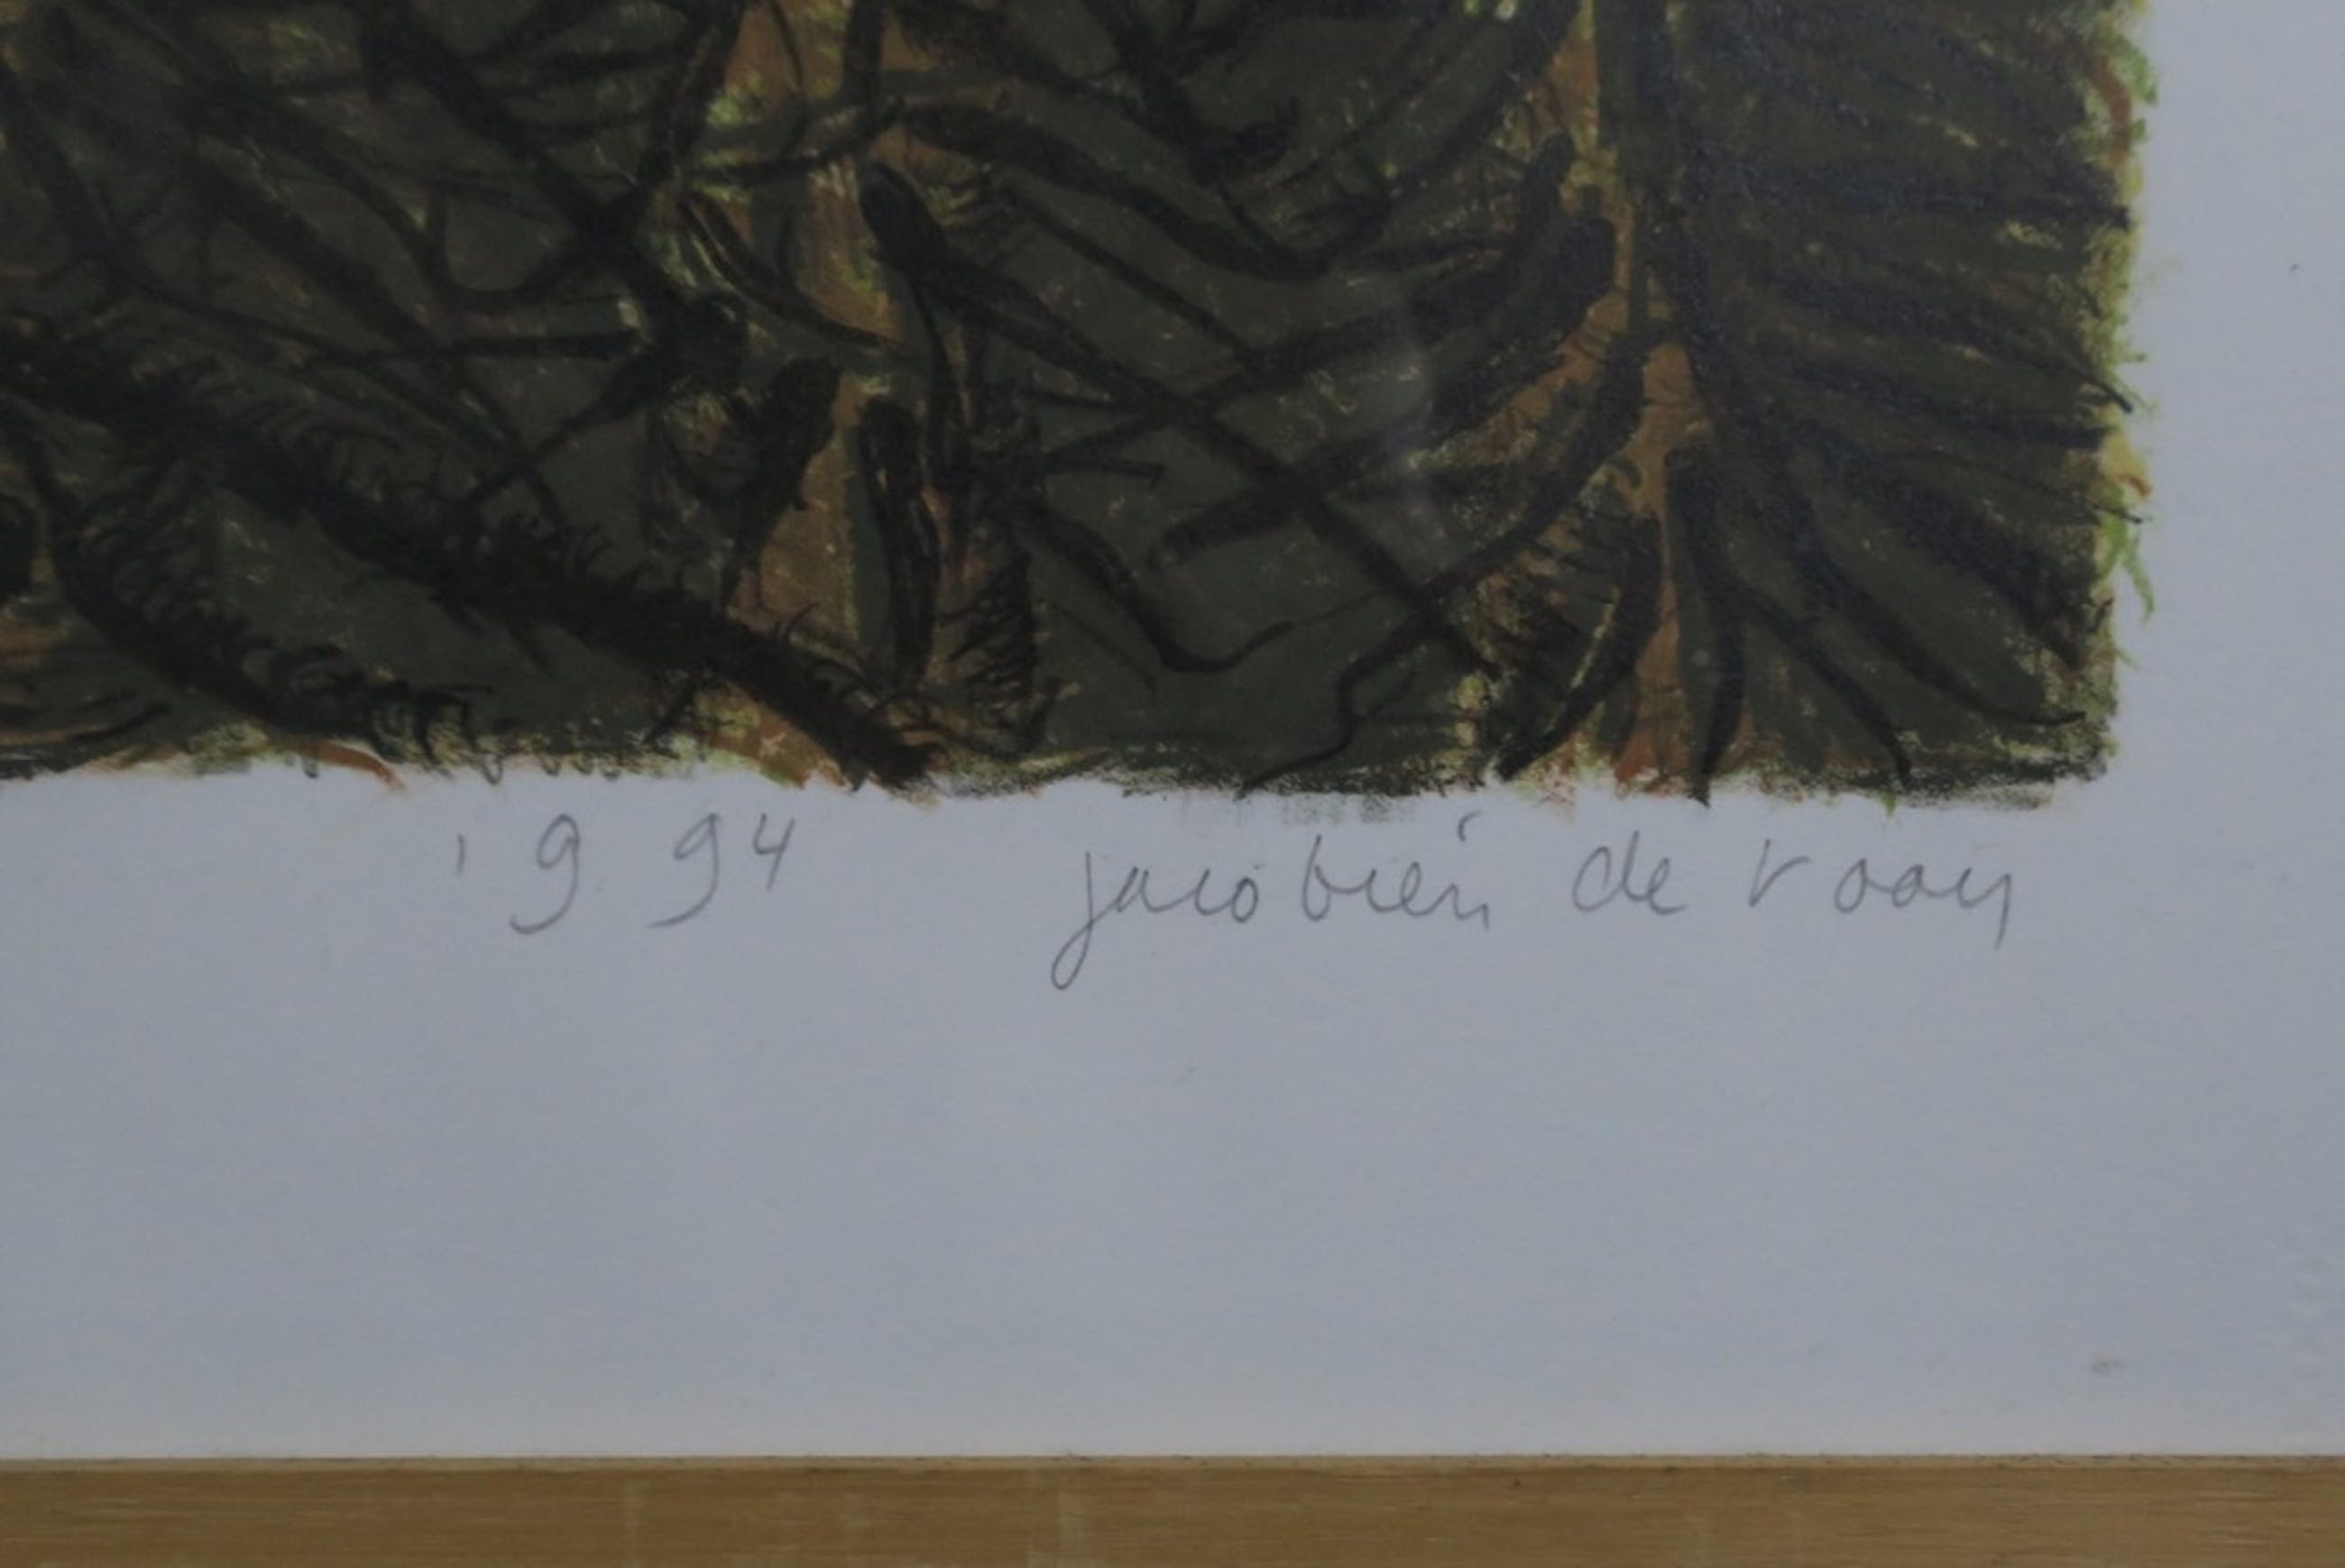 1994 jacobien de rooy